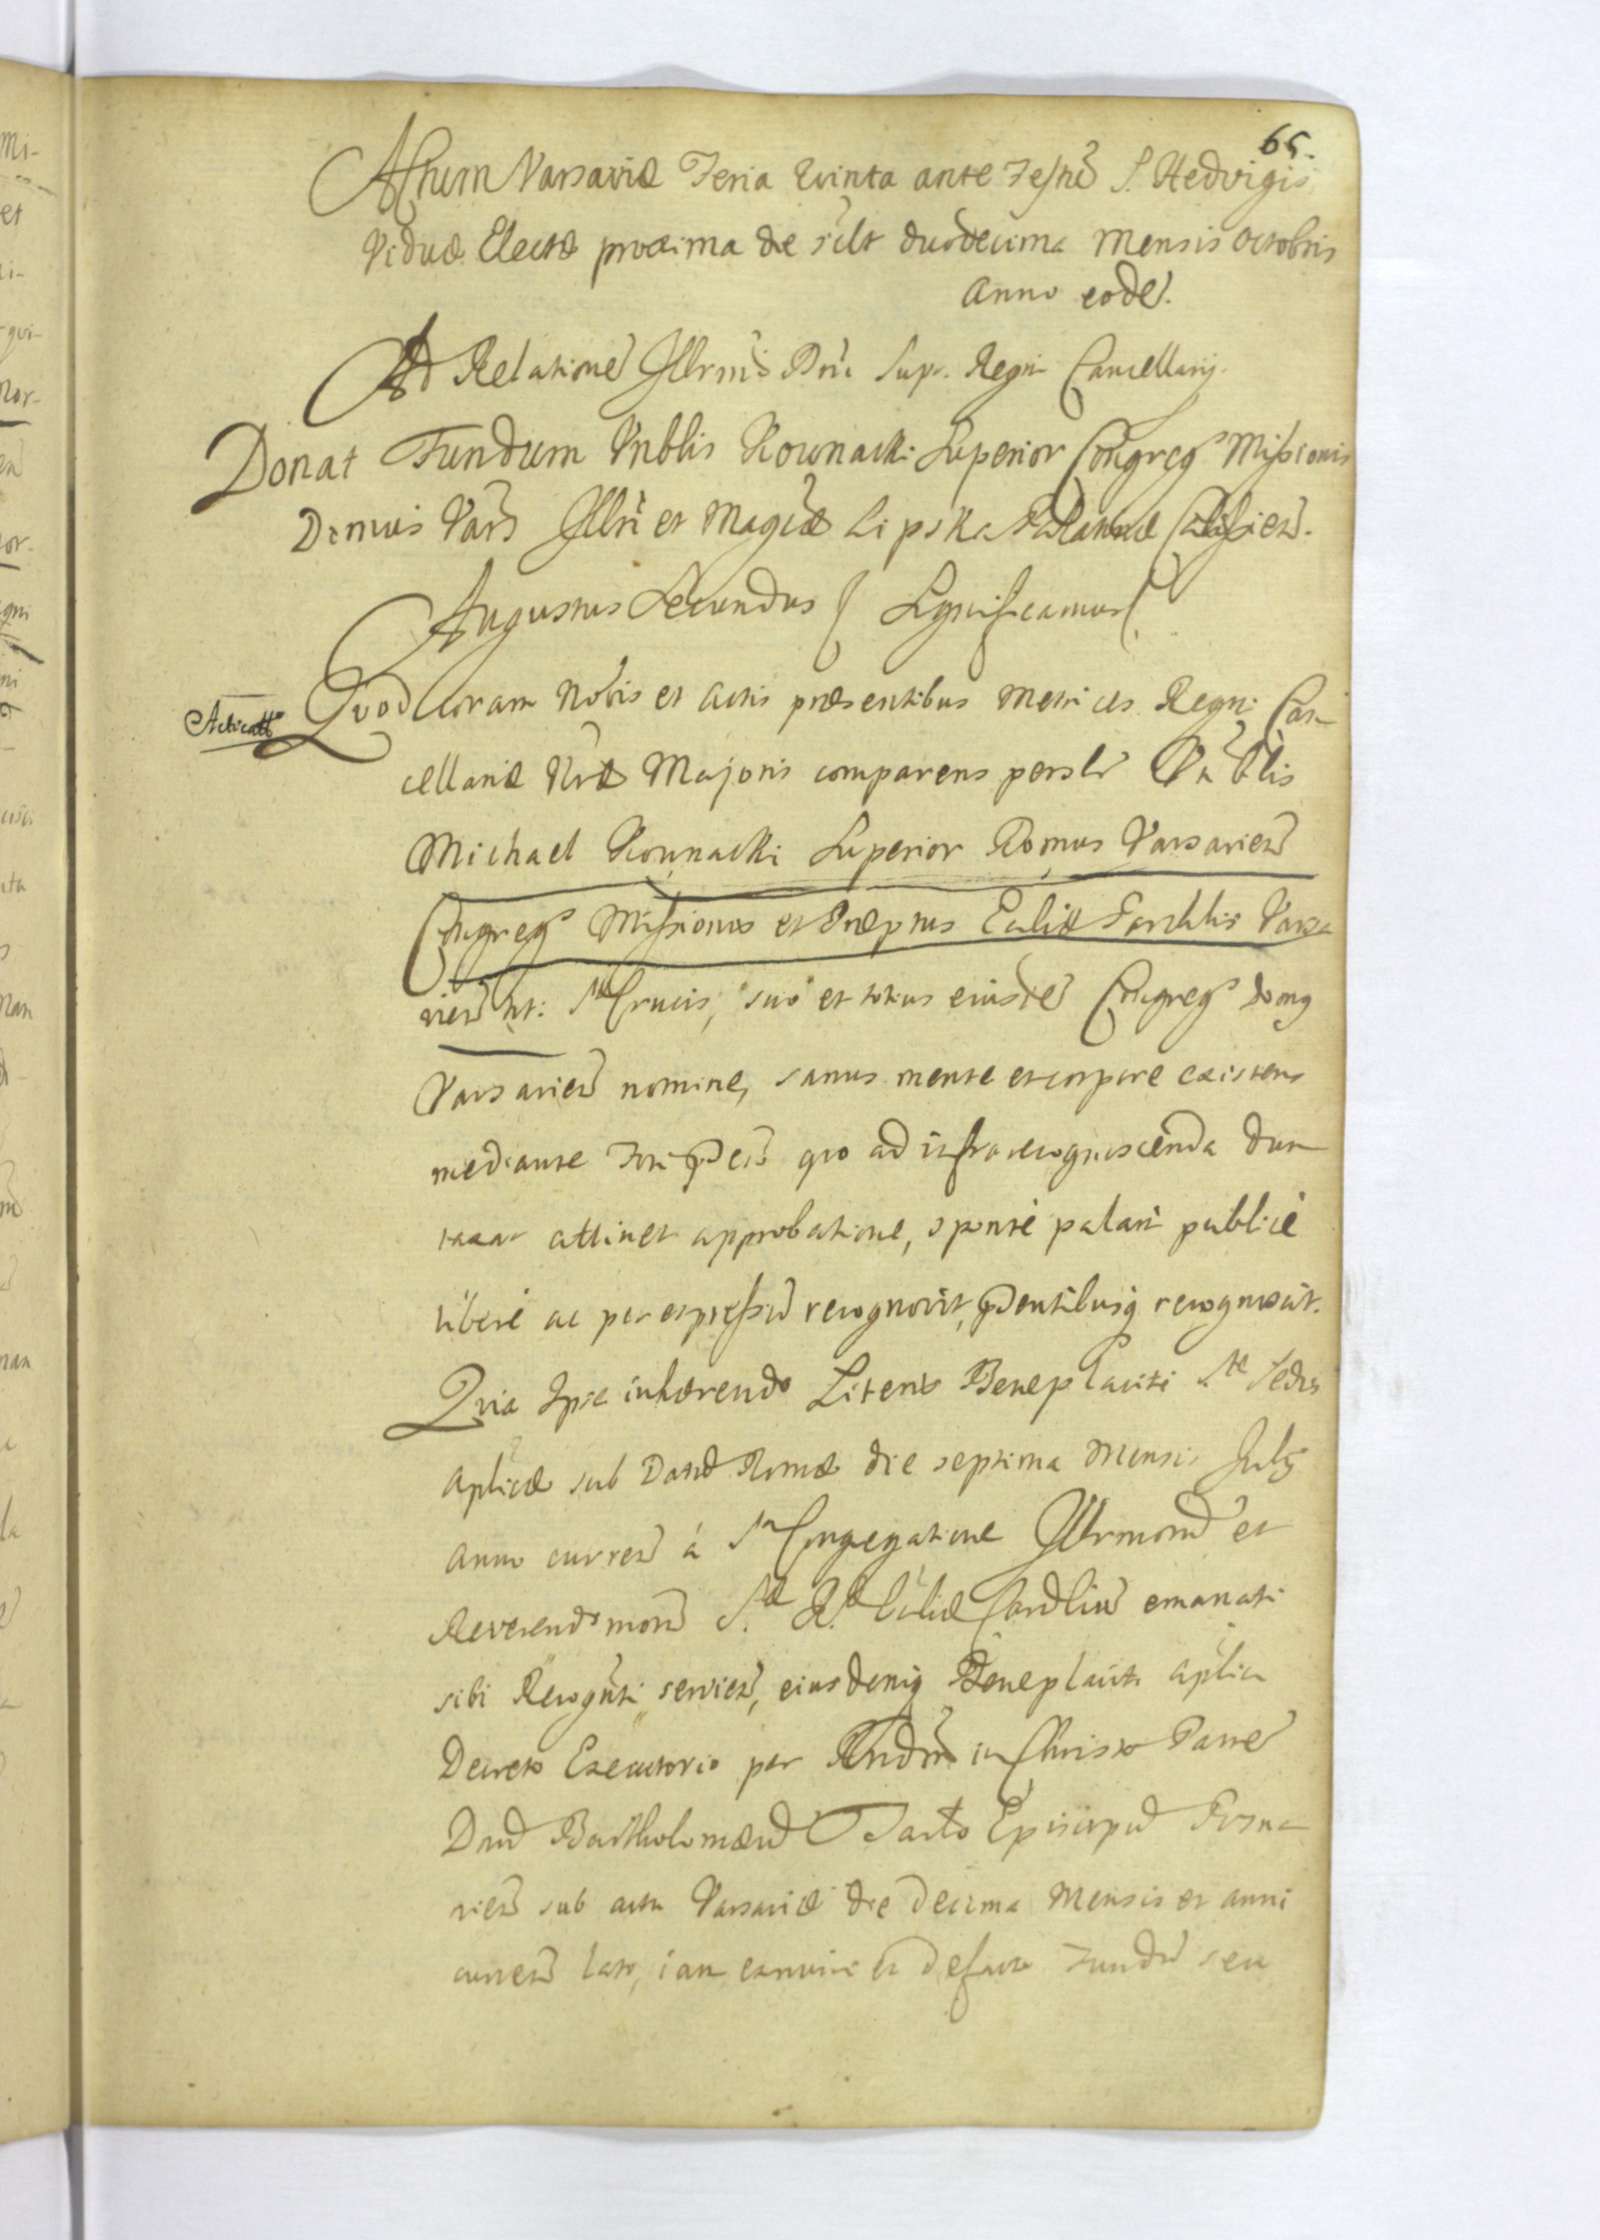 65.
Actum Varsaviæ Feria Quinta ante Festũ S. Hedvigis
Viduæ Electæ proxima die scilt duodecima Mensis Octobris
Anno eodẽ.
Ad Relationẽ Illrmi Dni Supr. Regni Cancellarij.
Donat Fundum Vnblis Kownacki Superior Congreg̃ Missionis
Domus Vars̃ Illri et Magcæ Lipska Palatinæ Calissien̄.
Augustus Secundus Significamus
Quod coram Nobis et Actis præsentibus Metrices Regni Can
Acticatt
cellariæ Nræ Majoris comparens persl̃r Vnblis
Michael Kownacki Superior Domus Varsavien̄
Congreg̃ Missionis et Præptus Eccliæ Parchlis Varsa
vien̄ tt: S Crucis, suo et totius eiusdẽ Congreg̃ Domg
Varsavien̄ nomine, sanus mente et corpore existens
mediante Fori p̃den̄ quo ad infrarecognoscenda dun
taxat attinet approbatione, sponte palam publice
libere ac per expressũ recognovit, p̃dentibusq̃ recognoscit.
Quia Ipse inhærendo Literis Beneplaciti Stæ Sedis
Aplicæ sub Datũ Romæ die septima Mensis Julij
Anno curren̄ à Sa Congregatione Illrmorũ et
Reverendsmorũ S. R. Ecliæ Cardliũ emanati
sibi Recogñti servien̄, eiusdemq̃ Beneplaciti Aplici
Decreto Executorio per Rndũ in Christo Patrẽ
Dnũ Bartholomæũ Tarło Episcopũ Posna
nien̄ sub actu Varsaviæ die decima Mensis et anni
curren̄ lato, iam exnunc et defacto Fundũ seu